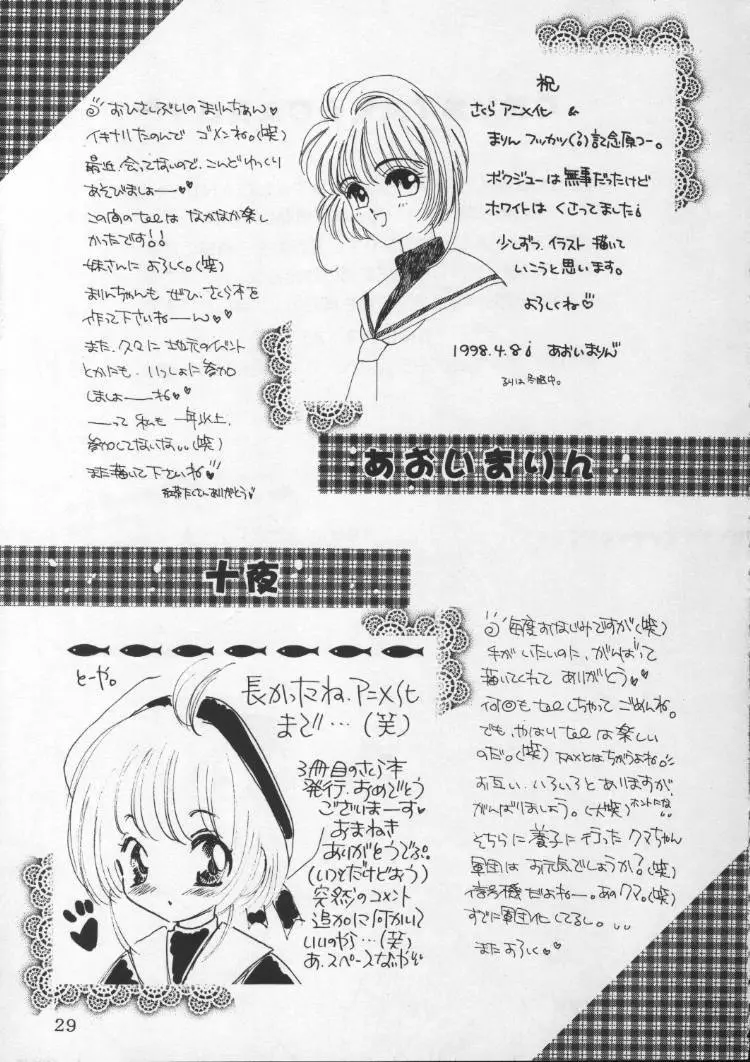 おひさしぶりの まりんちゃん♥
イキナリたのんで ゴメンね。(笑)
最近、会ってないので、こんどゆっくり
あそびましょー♥♥
この間のtelは なかなか楽し
かったです!!
妹さんに よろしく。(笑)
まりんちゃんも ぜひ、さくら本を
作って下さいねーん♥♥
また、久々に 地元のイベント
とかにも、いっしょに参加
しましょーね♥♥
ーって 私も 一年以上、
参加してないな、、(笑)
また描いて下さいね♥
お茶たくさんありがとう♥
祝
さくら アニメ化 &
まりん フッカツ(る)記念原コー。
ボクジューは無事だったけど
ホワイトは くさってましたi
少しずつ、イラスト 描いて
いこうと思います。
よろしくね♡
1998.4.8i あおいまりん
あおいまりん
十夜
とーや。
長かったね、アニメ化
まで…(笑)
3冊目のさくら本
発行、おめでとう
ございまーす♥
おまねき
ありがとうでぷ。
(いつとだけどおう)
突然のコメント
追加に何かいて
いいのやら…(笑)
あ、スペースなかや
毎度おなじみですが(笑)
手がいたいのに、がんばって
描いてくれて ありがとう♥
何回も telしちゃって ごめんね。
でも、やはり telは 楽しい
のだ。(笑) FAXとはちがうよね♪
お互い、いろいろとありますが
がんばりましょう。(大笑)ホントにな!!
そちらに 養子に 行った クマちゃん
軍団は お元気でしょうか?(笑)
信号機だよねー。あのクマ。(笑)
すでに軍団化してるし。、、
また よろしく♥♥
29